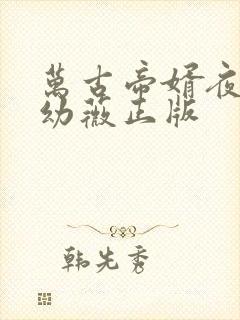 萬古帝婿夜
幼薇正版
韩先秀